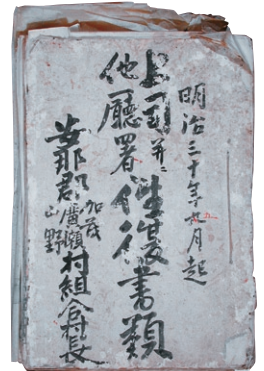 明治三十年九月起
上司并ニ
他廳署往復書類
安那郡加茂廣瀬山野村組合村長